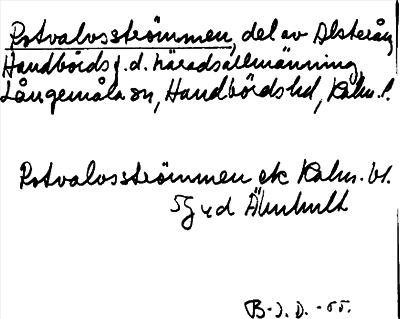 Rotvalvsströmmen, del av Alsterån,
Handbörds f.d. häradsallmänning
Långemåla sn, Handbörds hd, Kalm. l.
Rotvalvsströmmen ek Kalm. bl.
5g v d Älmhult
B-J. D. -55.